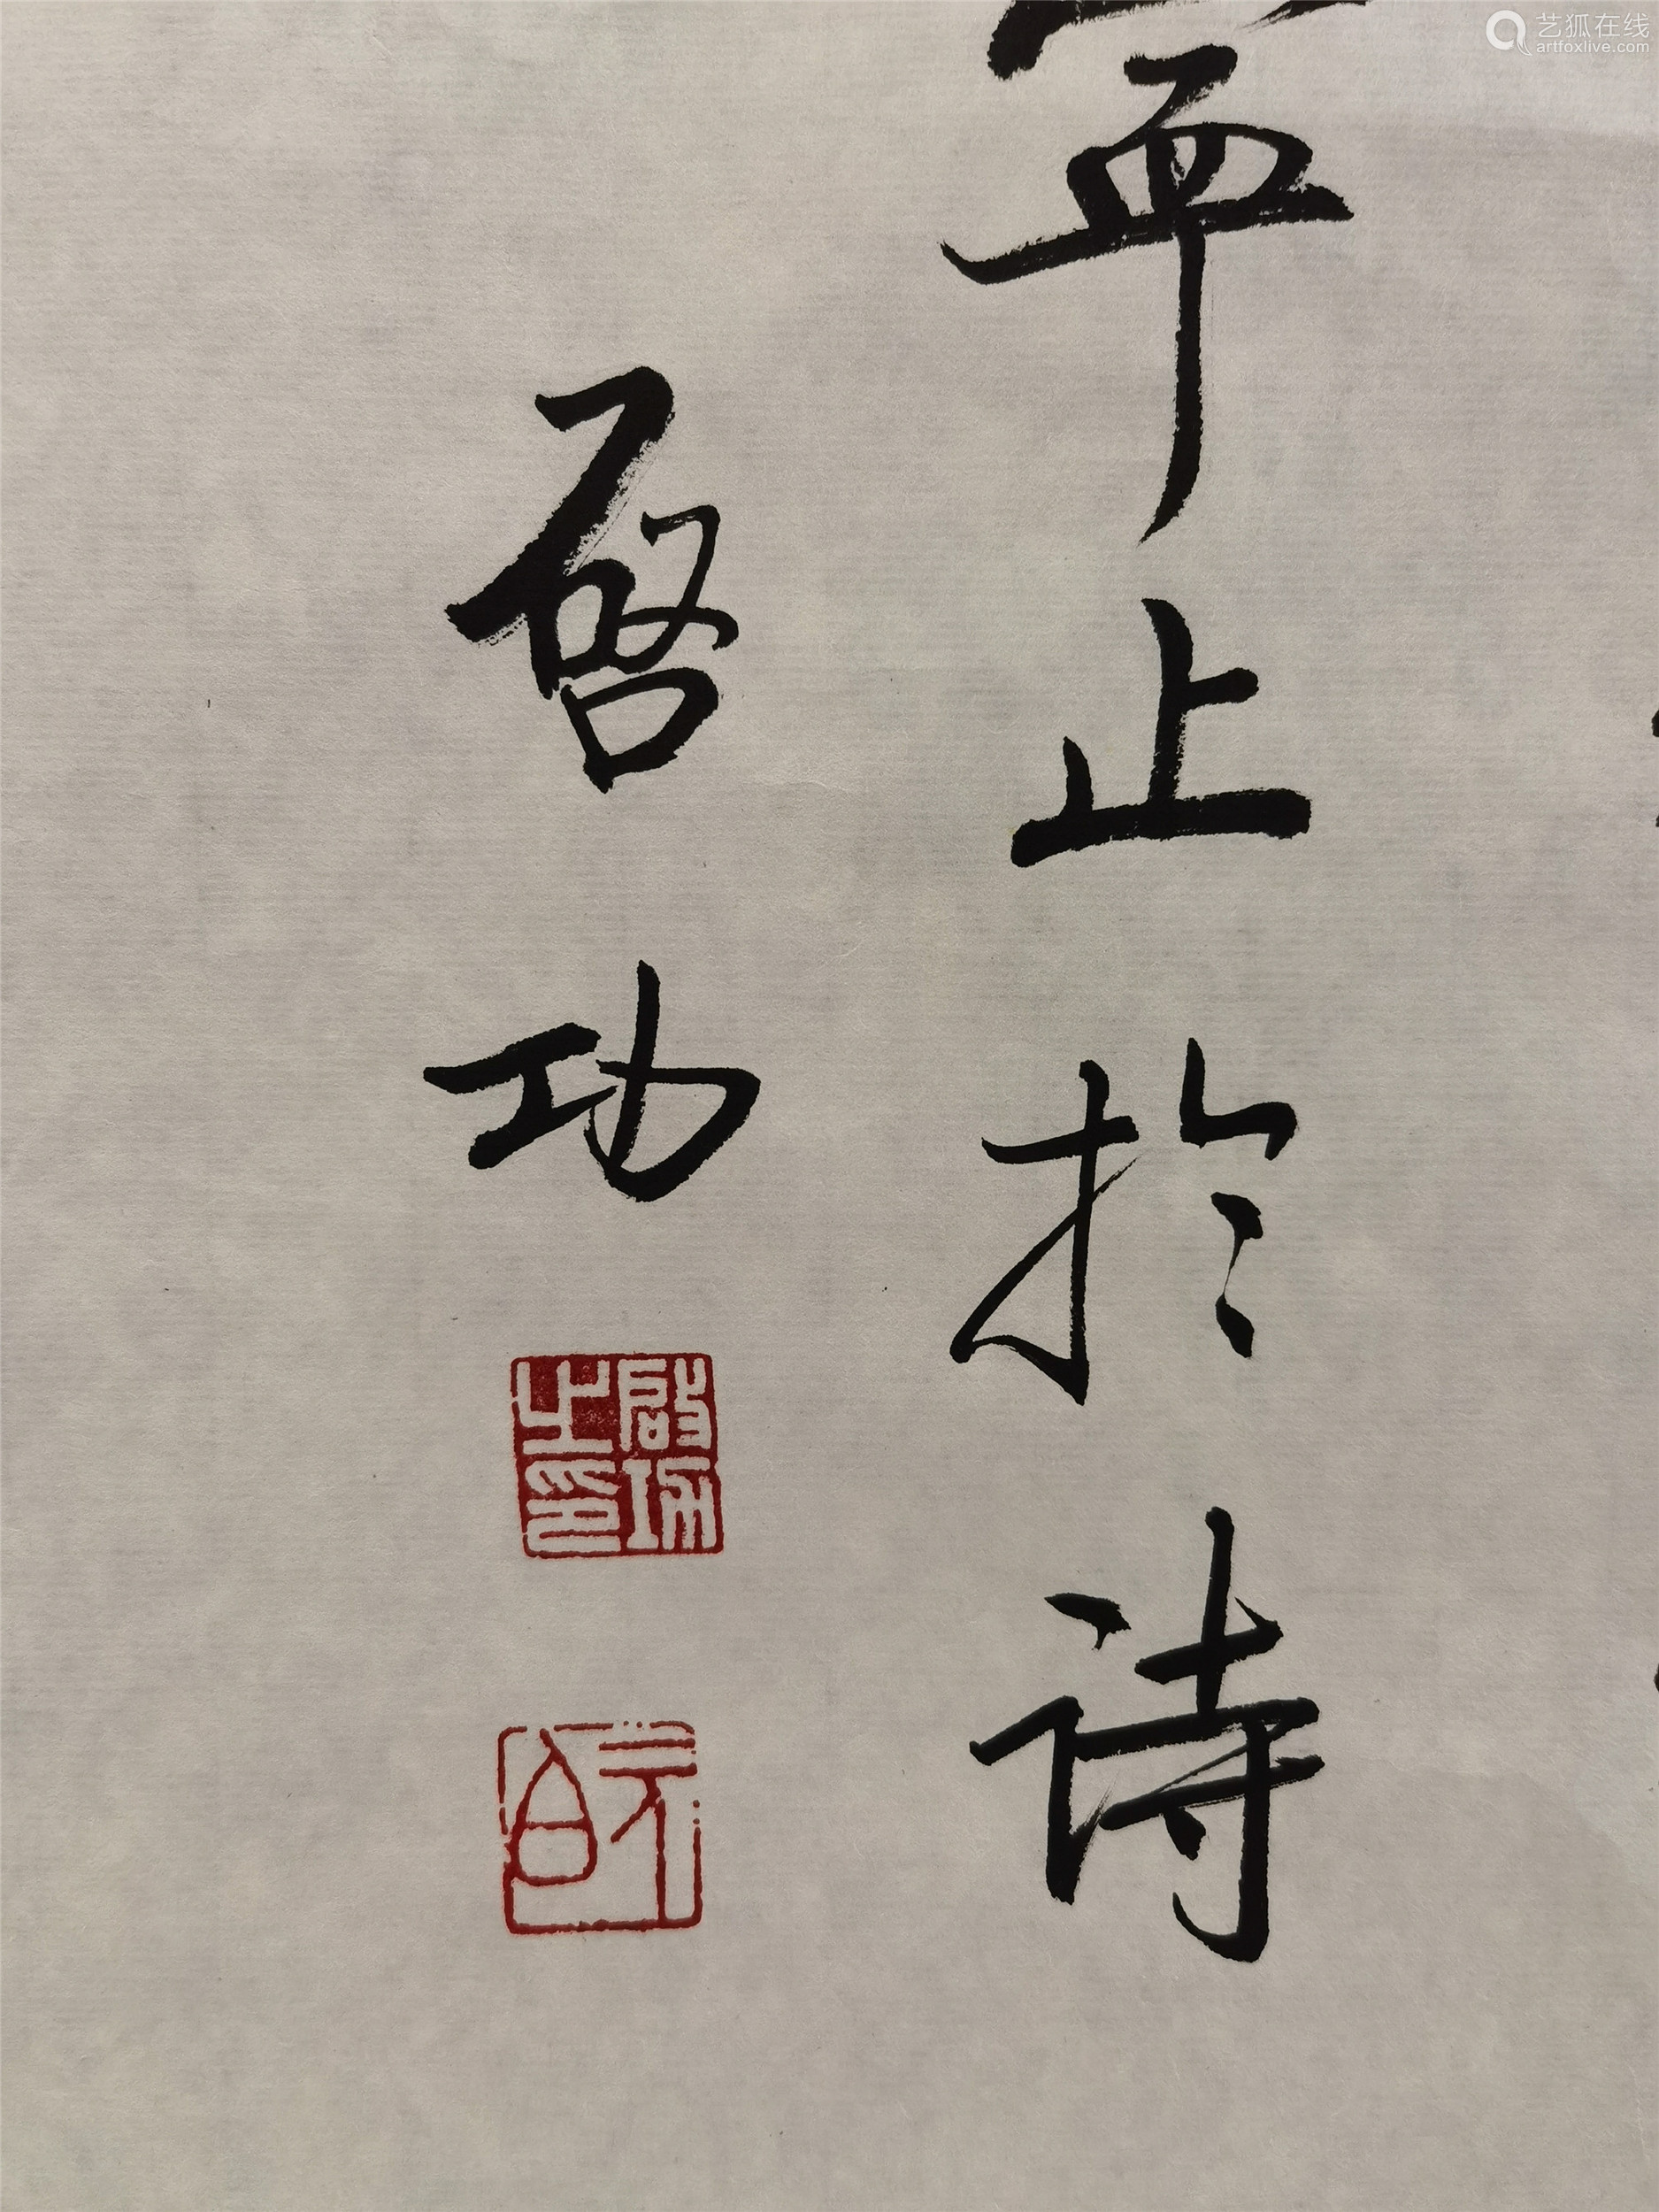 艺狐在线
artfoxlive.com
寧止於诗
啓功
啟功之印
元白